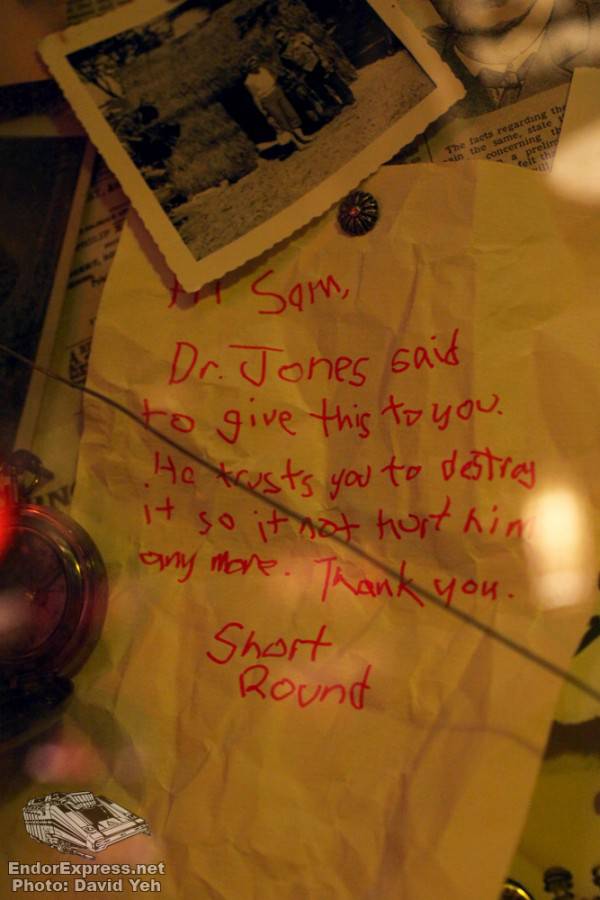 The facts regarding the
the same, state
concerning the
a prelim
felt tha
Hi Sam,
Dr. Jones said
to give this to you.
He trusts you to destroy
it so it not hurt him
any more. Thank you.
Short
Round
EndorExpress.net
Photo: David Yeh